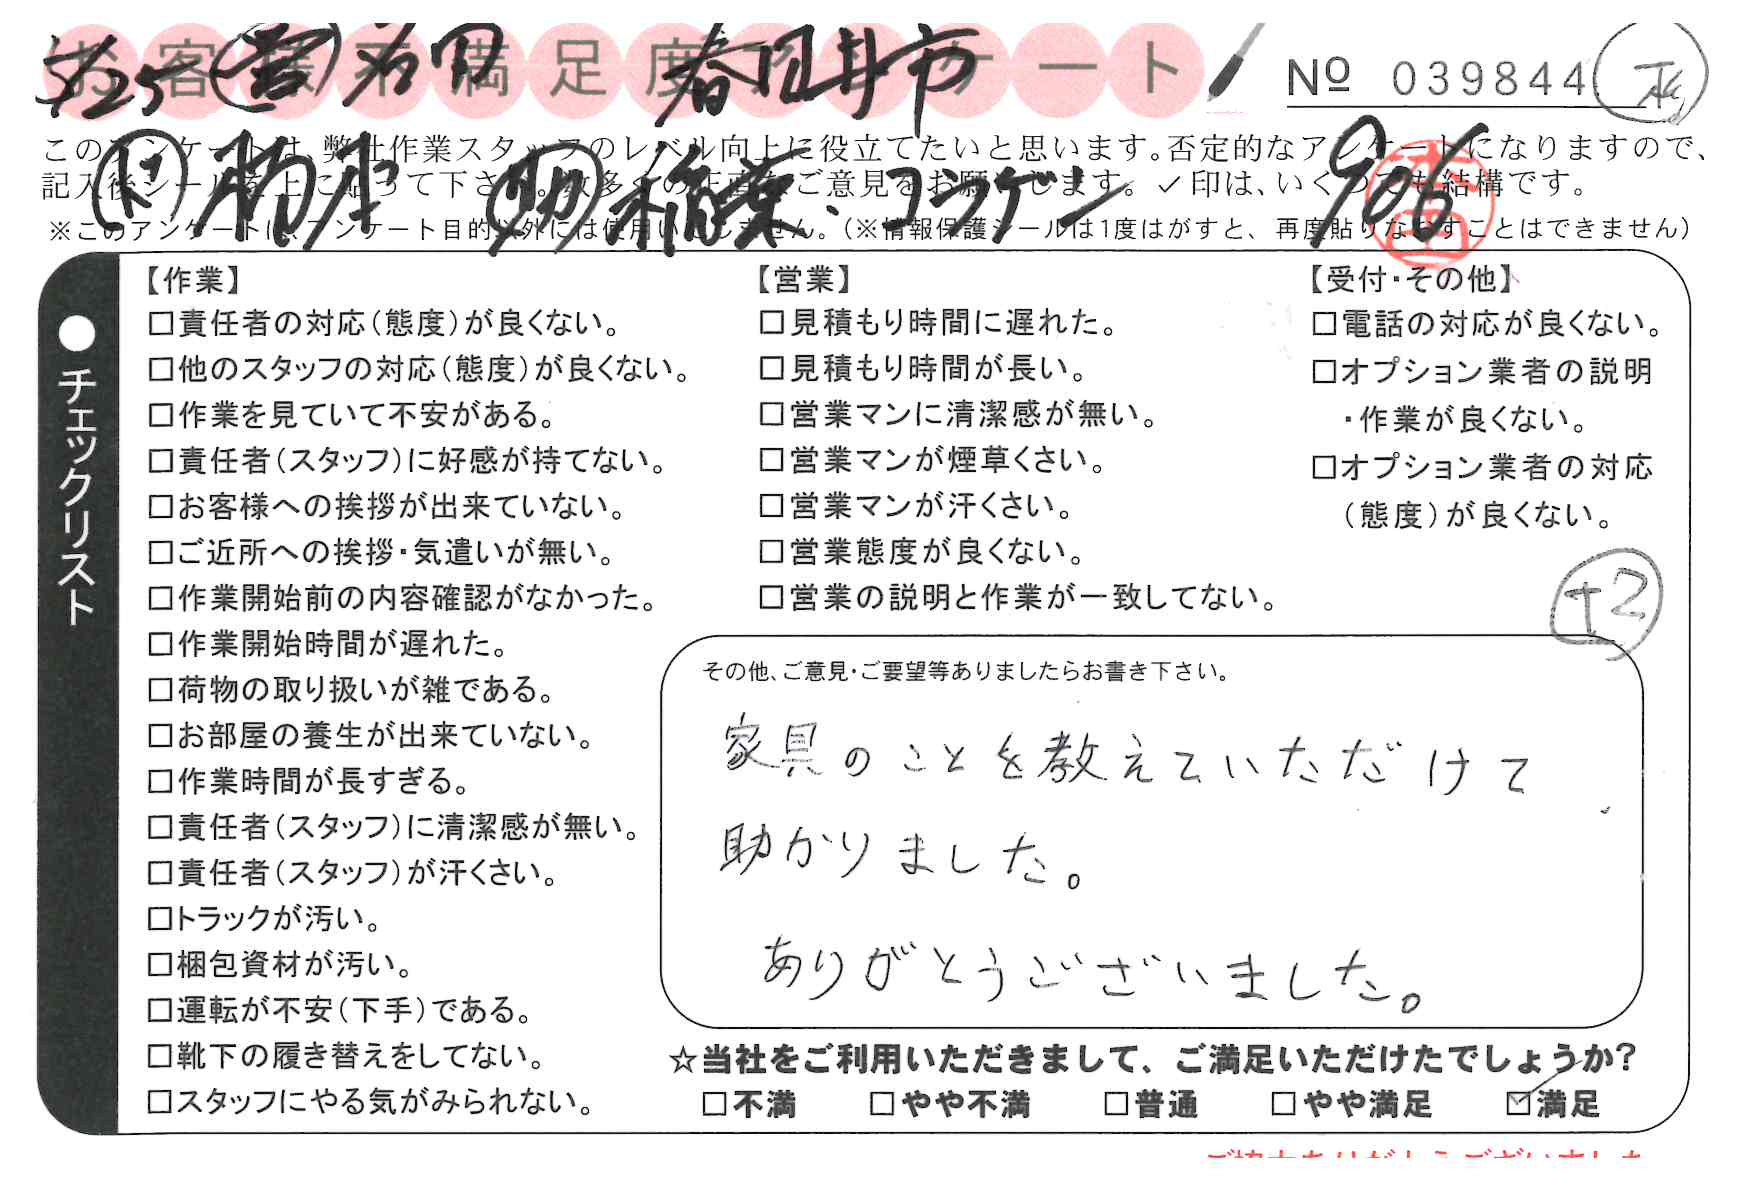 お客様不満足度アンケート
5/25 営 治田 春日井市
№ 039844
このアンケートは、弊社作業スタッフのレベル向上に役立てたいと思います。否定的なアンケートになりますので、
記入後シールを上に貼って下さい。数多くの正直なご意見をお願いします。✓印は、いくつでも結構です。
※このアンケートは、アンケート目的以外には使用いたしません。（※情報保護シールは1度はがすと、再度貼りなおすことはできません）
助 稲葉・コンゲン
●チェックリスト
【作業】
□責任者の対応（態度）が良くない。
□他のスタッフの対応（態度）が良くない。
□作業を見ていて不安がある。
□責任者（スタッフ）に好感が持てない。
□お客様への挨拶が出来ていない。
□ご近所への挨拶・気遣いが無い。
□作業開始前の内容確認がなかった。
□作業開始時間が遅れた。
□荷物の取り扱いが雑である。
□お部屋の養生が出来ていない。
□作業時間が長すぎる。
□責任者（スタッフ）に清潔感が無い。
□責任者（スタッフ）が汗くさい。
□トラックが汚い。
□梱包資材が汚い。
□運転が不安（下手）である。
□靴下の履き替えをしてない。
□スタッフにやる気がみられない。
【営業】
□見積もり時間に遅れた。
□見積もり時間が長い。
□営業マンに清潔感が無い。
□営業マンが煙草くさい。
□営業マンが汗くさい。
□営業態度が良くない。
□営業の説明と作業が一致してない。
【受付・その他】
□電話の対応が良くない。
□オプション業者の説明
・作業が良くない。
□オプション業者の対応
（態度）が良くない。
+2
その他、ご意見・ご要望等ありましたらお書き下さい。
家具のことを教えていただけて
助かりました。
ありがとうございました。
☆当社をご利用いただきまして、ご満足いただけたでしょうか?
□不満 □やや不満 □普通 □やや満足 ☑満足
ご協力ありがとうございました